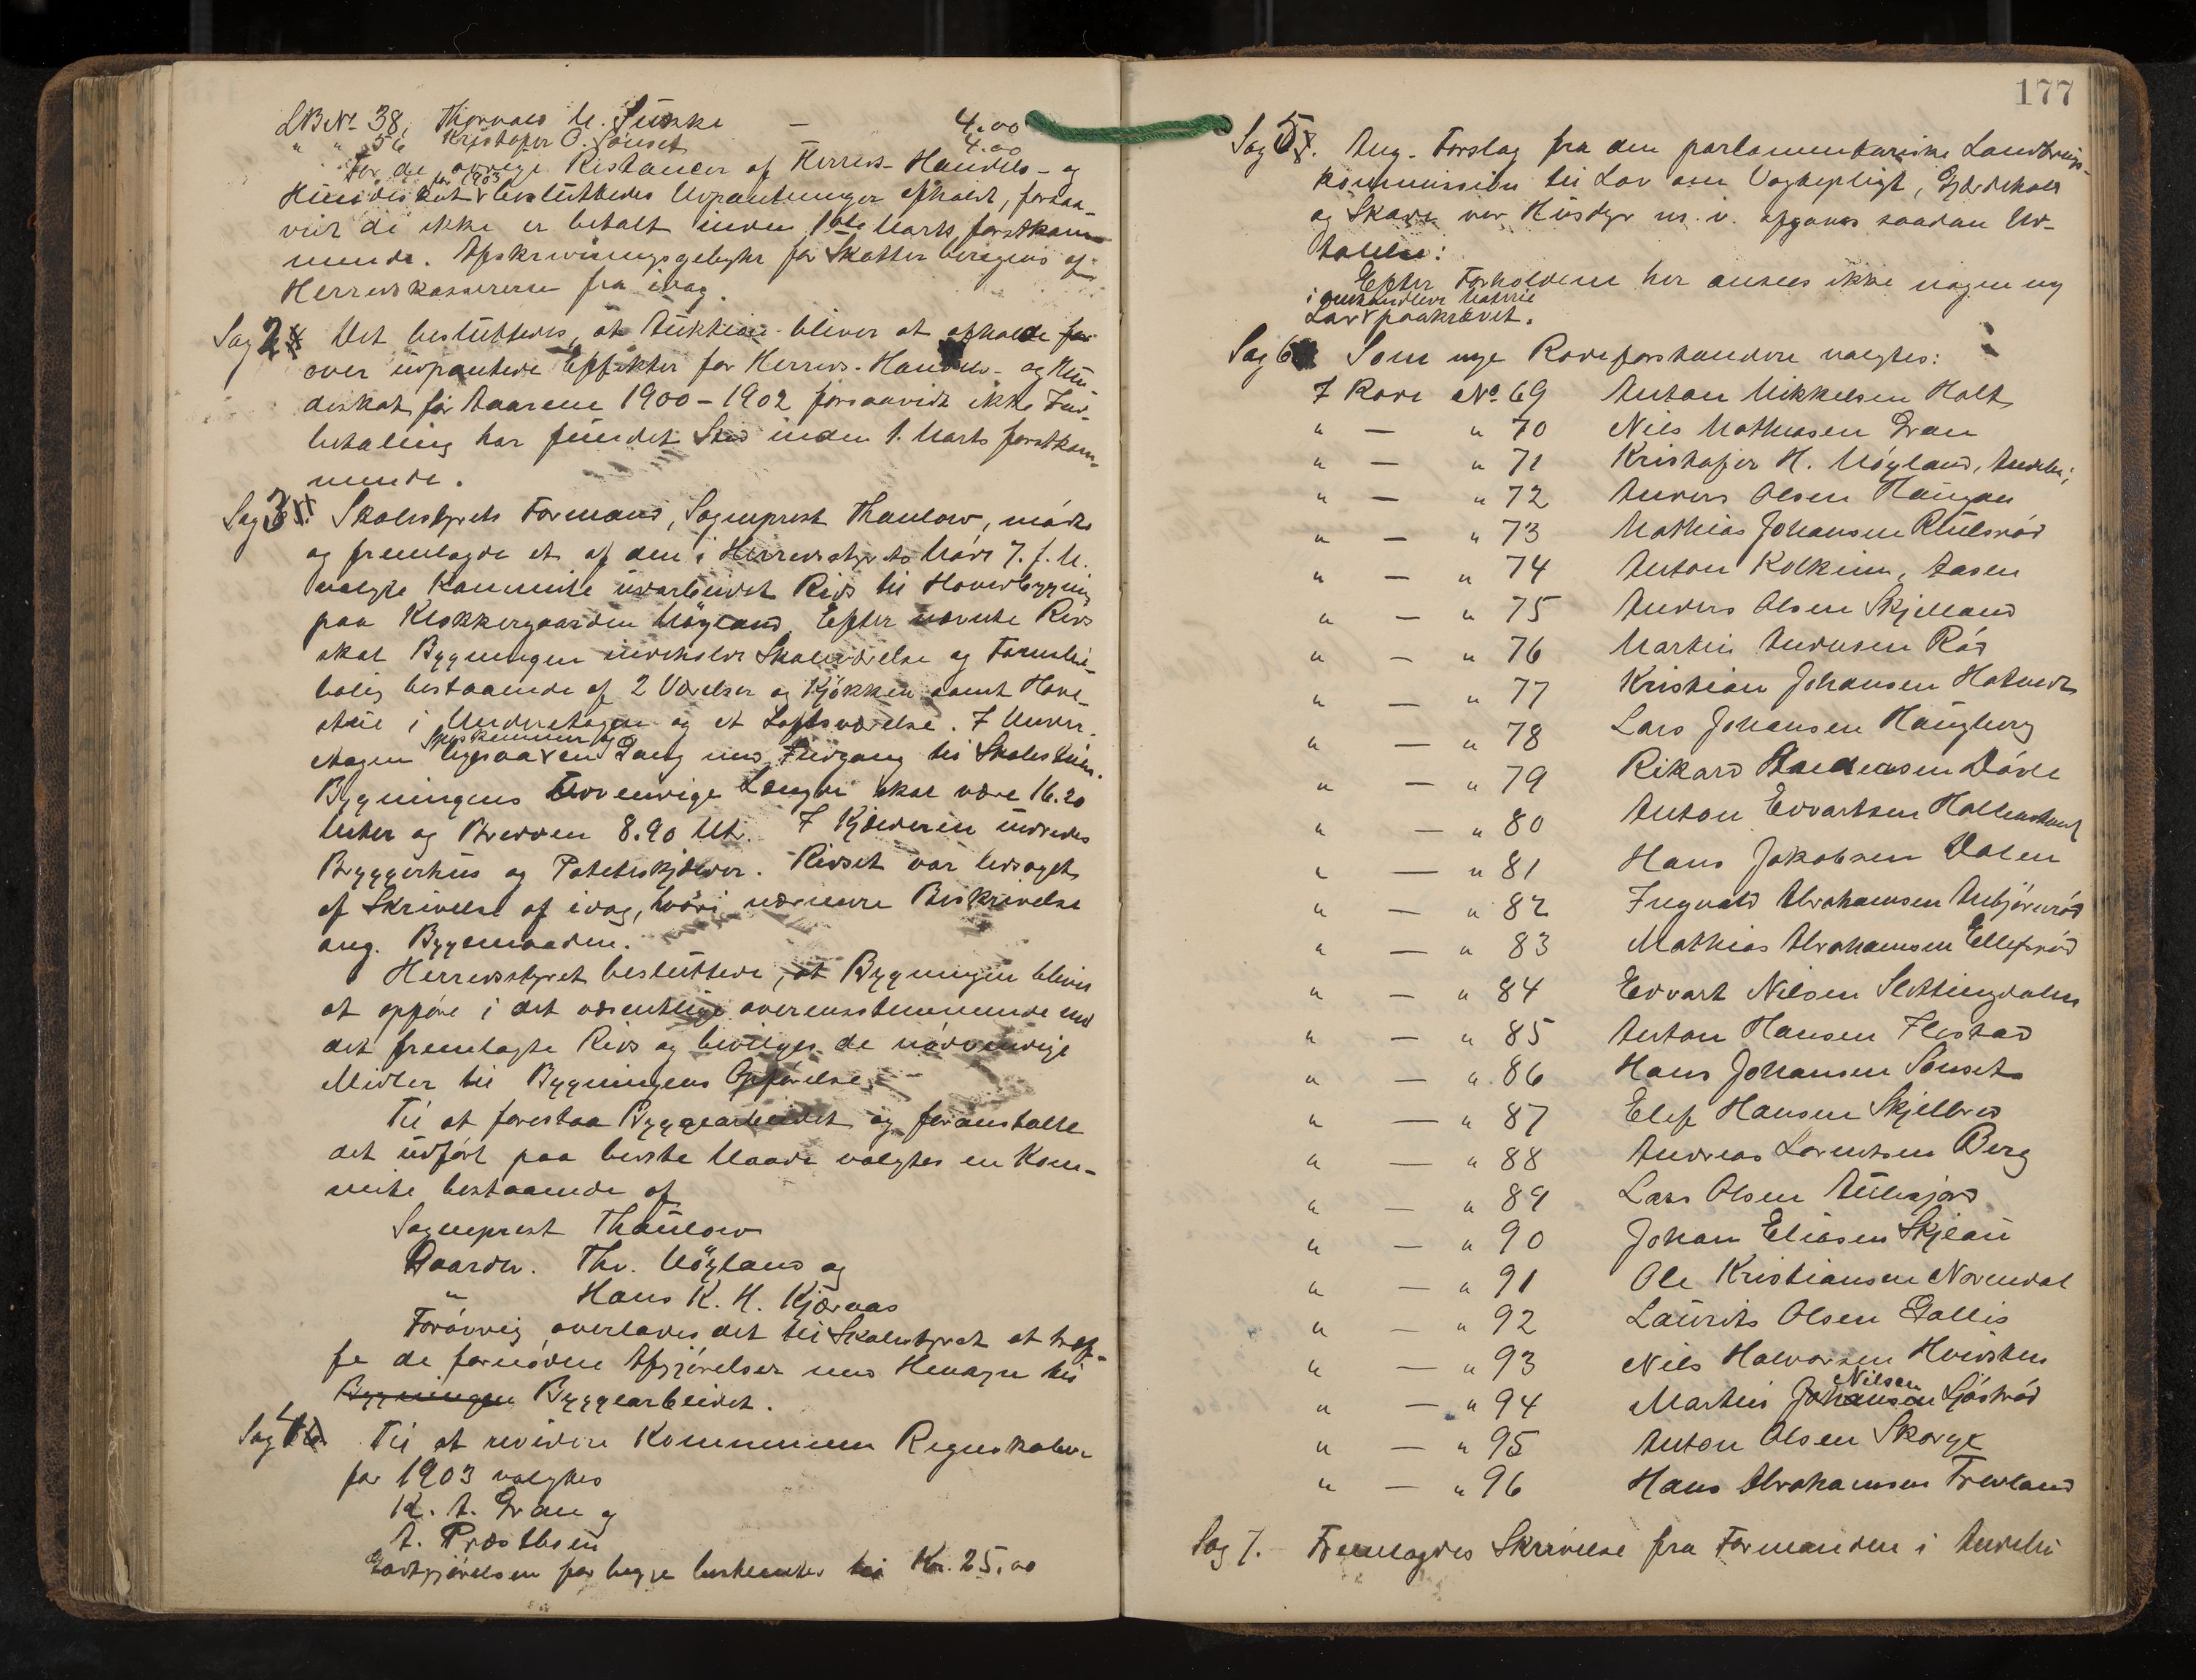 LBNo 38, Thorvald M. Sukke — 4.00
" " 56 Kristofer O. Sønset 4.00
For de øvrige Restancer af Herreds- Handels- og
for 1903
Hundeskat besluttedes Udpantninger afholdt, forsaa-
vidt de ikke er betalt inden 1ste Marts førstkom-
mende. Afskrivningsgebyhr for Skatter beregnes af
Herredskassereren fra idag.
Sag 2 Det besluttedes, at Auktion bliver at afholde
over udpantede Effekter for Herreds- Handels- og Hun-
deskat for Aarene 1900-1902 forsaavidt ikke Ind-
betaling har fundet Sted inden 1. Marts førstkom-
mende.
Sag 3 Skolestyrets Formand, Sogneprest Thaulow, mødte
og fremlagde et af den i Herredsstyrets Møde 7. f. M.
valgte Kommite udarbeidet Rids til Hovedbygning
paa Klokkergaarden Møyland. Efter nævnte Rids
skal Bygningen indeholde Skoleværelse og Familie-
bolig bestaaende af 2 Værelser og Kjøkken samt Kove
stue i Underetagen og et Loftsværelse. I Under-
Spiskammer og
etagen ligesaa en Gang med Indgang til Skolestuen.
Bygningens udvendige Længde skal være 16.20
Meter og Bredden 8.90 Mt. I Kjælderen indredes
Bryggerhus og Poteteskjælder. Ridset var ledsaget
af Skrivelse af idag, hvori nærmere Beskrivelse
ang. Byggemaaden.
Herredsstyret besluttede, at Bygningen bliver
at opføre i det væsentlige overensstemmende med
det fremlagte Rids og beviliges de nødvendige
Midler til Bygningens Opførelse.
Til at forestaa Byggearbeidet og foranstalte
det udført paa bedste Maade valgtes en Kom-
mite bestaaende af
Sogneprest Thaulow
Gaardbr. Thv. Møyland og
" Hans K. H. Kjærnaas
Forøvrig overlades det til Skolestyret at træf-
fe de fornødne Afgjørelser med Hensyn til
Bygningen Byggearbeidet.
Sag 4 Til at revidere Kommunens Regnskaber
for 1903 valgtes
K. A. Gran og
A. Præstbøen
Godtgjørelsen for begge bestemtes til Kr. 25.00
177
Sag 5. Ang. Forslag fra den parlamentariske Landbrugs-
kommission til Lov om Vogtepligt, Gjærdehold
og Skade ved Husdyr m. v. afgaves saadan Ud-
talelse:
Efter Forholdene her ansees ikke nogen ny
i omhandlede Materie
Lov paakrævet.
Sag 6 Som nye Rodeforstandere valgtes:
I Rode No. 69 Anton Mikkelsen Holt
" — " 70 Nils Mathiasen Gran
" — " 71 Kristofer H. Møyland, Andebu;
" — " 72 Anders Olsen Haugan
" — " 73 Mathias Johansen Rulsrød
" — " 74 Anton Kolkinn, Aasen
" — " 75 Anders Olsen Skjelland
" — " 76 Martin Andersen Rød
" — " 77 Kristian Johansen Hotvedt
" — " 78 Lars Johansen Haugberg
" — " 79 Rikard Døvle
" — " 80 Anton Edvartsen
" — " 81 Hans Jakobsen Dalen
" — " 82 Ingvald Abrahamsen Anbjørnrød
" — " 83 Mathias Abrahamsen Ellefsrød
" — " 84 Edvart Nilsen Slettingdalen
" — " 85 Anton Hansen Ilestad
" — " 86 Hans Johansen Sønset
" — " 87 Elef Hansen Skjelbred
" — " 88 Andreas Lorentsen Berg
" — " 89 Lars Olsen Aulesjord
" — " 90 Johan Eliasen Skjeau
" — " 91 Ole Kristiansen Nordal
" — " 92 Laurits Olsen Gallis
" — " 93 Nils Halvorsen Hvidsten
Nilsen
" — " 94 Martin Johansen Sjøstrød
" — " 95 Anton Olsen Skorge
" — " 96 Hans Abrahamsen Trevland
Sag 7. Fremlagdes Skrivelse fra Formanden i Andebu